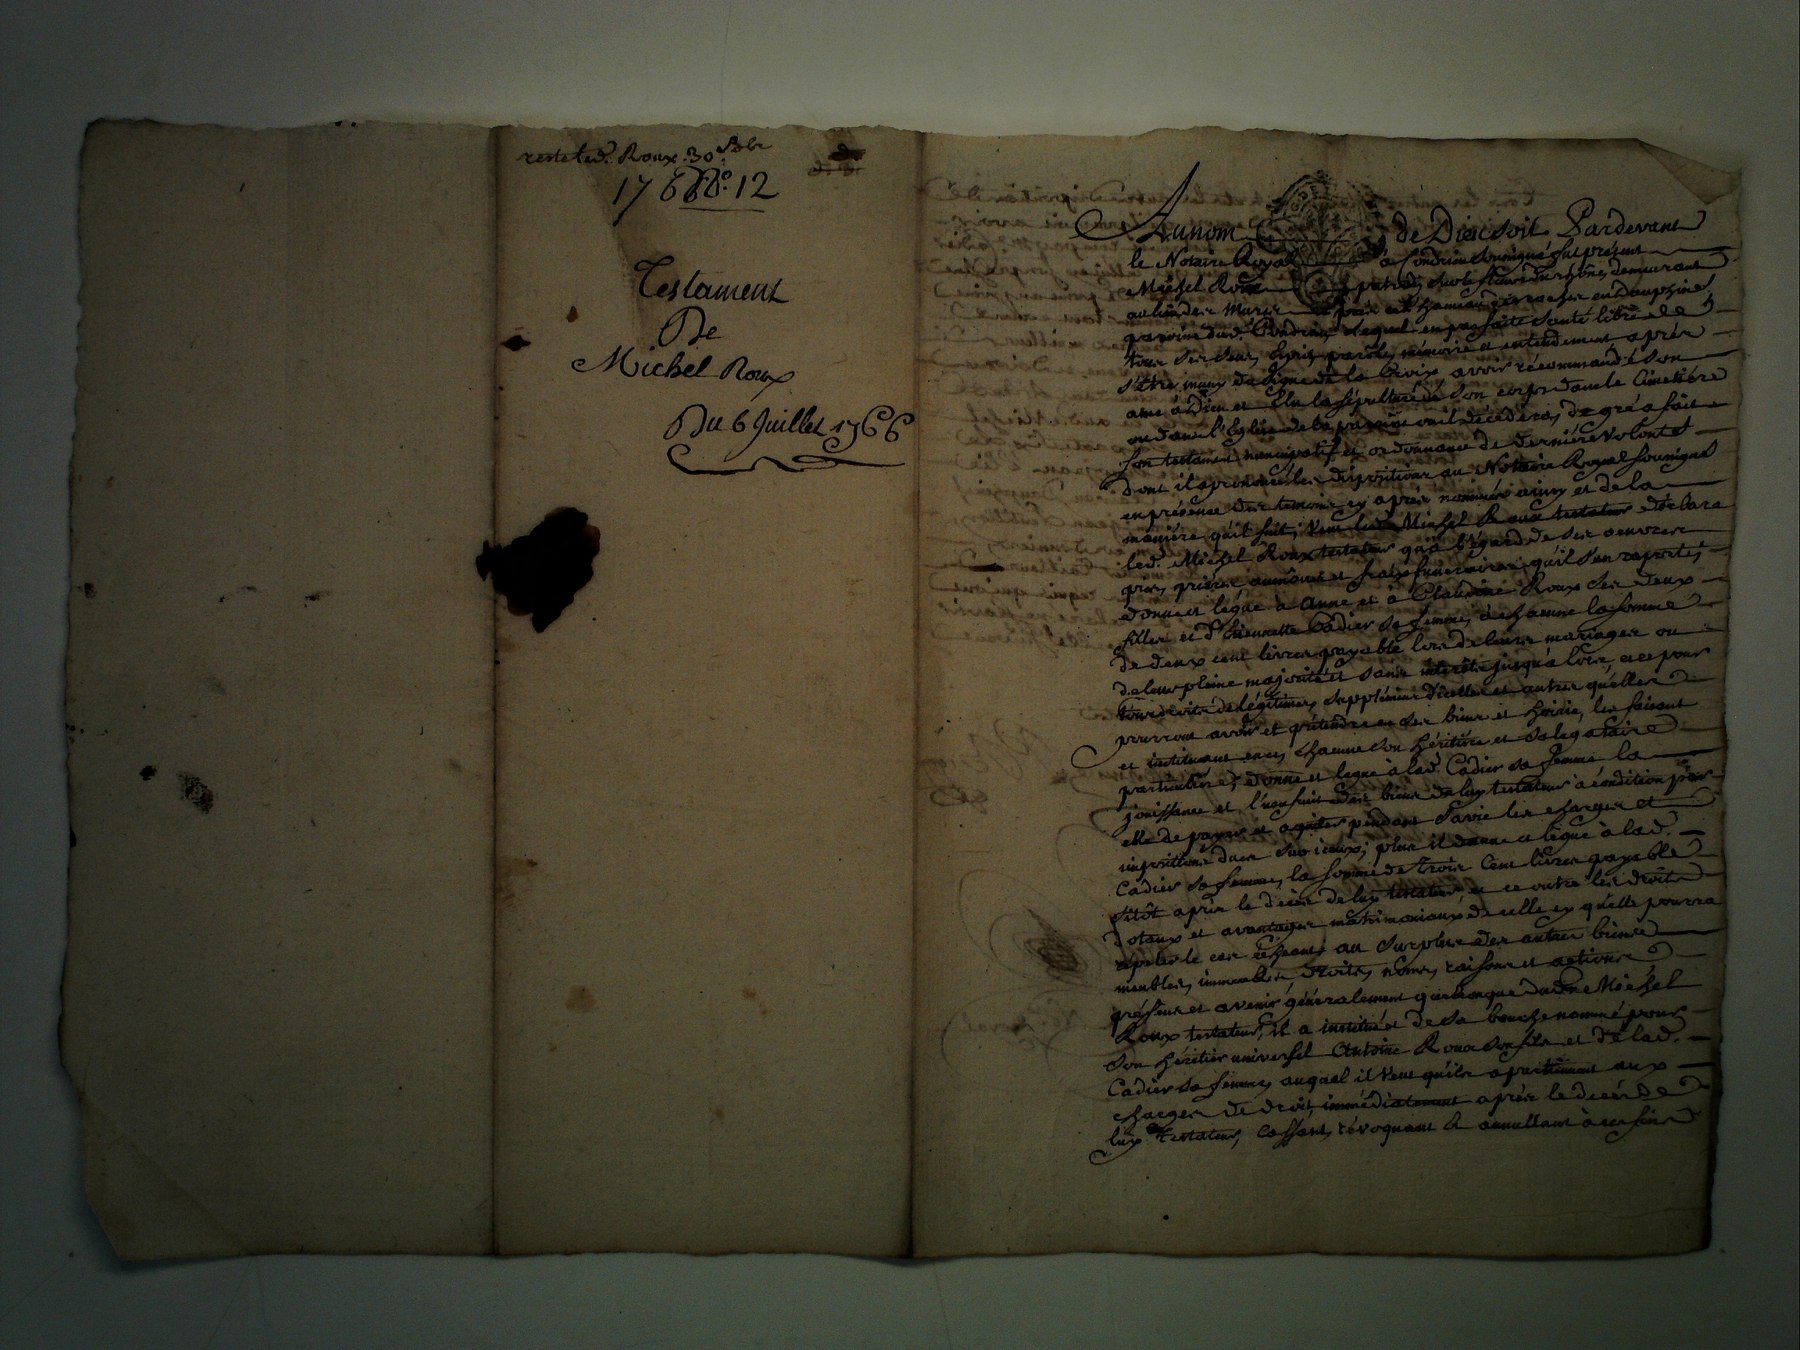 resteled. Roux 30 8bre
1768 N.° 12
Testament
De
Michel Roux
Du 6 Juillet 1766
Au nom de Dieu soit Pardevant
le Notaire Royal à Condrieu soussigné fut présent
Michel Roux sur le fleuve du rhône, demeurant
au lieu des en dauphiné
paroisse dud. Condrieu, lequel en parfaite santé libre de
tous ses sens, esprit, parole, mémoire et entendement, après
s'être muny du signe de la Croix avoir récommandé son
ame à Dieu et élu la sépulture de son corps dans le Cimetière
ou dans l'Eglise de la paroisse ou il décédera, de gré a fait
son testament nuncupatif et ordonnance de dernière volonté
dont il a prononcé les dispositions au Notaire Royal soussigné
en présence des temoins cy après nommés ainsy et de la
manière qu'il suit; Veut led. Michel Roux testateur déclare
led. Michel Roux testateur qu'à l'égard de ses oeuvres
pies, prières aumônes et fraix funeraires qu'il s'en raporte,
donne et lègue à Anne et à Claudine Roux ses deux
filles et d'hieunette Cadier sa femme, à chacune la somme
de deux cent livres payable lors de leurs mariages ou
de leur pleine majorité et sans interêts jusqu'a lors, et ce pour
tous droits de légitimes, supplément d'icelles et autres qu'elles
pourront avoir et prétendre en ses biens et hoirie, les faisant
et instituant en ce, chacune son héritière et sa legataire
particulière; donne et legue à lad. Cadier sa femme la
jouissance et l'usufruit des biens de luy testateur à condition par
elle de payer et aquiter pendant sa vie les charges et
impositions dues sur iceux; plus il donne et lègue à lad.
Cadier sa femme, la somme de trois Cent livres payable
sitôt après le décès de luy testateur, et ce outre les droits
dotaux et avantages matrimoniaux de celle cy qu'elle pourra
répeter le cas échéant; au surplus des autres biens
meubles, immeubles, droits, noms, raisons et actions
présens et avenir généralement quelconques dud. Michel
Roux testateur, il a institué et de sa bouche nommé pour
son héritier universel Antoine Roux son fils et de lad.
Cadier sa femme, auquel il Veut qu'ils apartiennent aux
charges de droit, immédiatement après le décès de
luy testateur, cassant, révoquant et annullant à ces fins